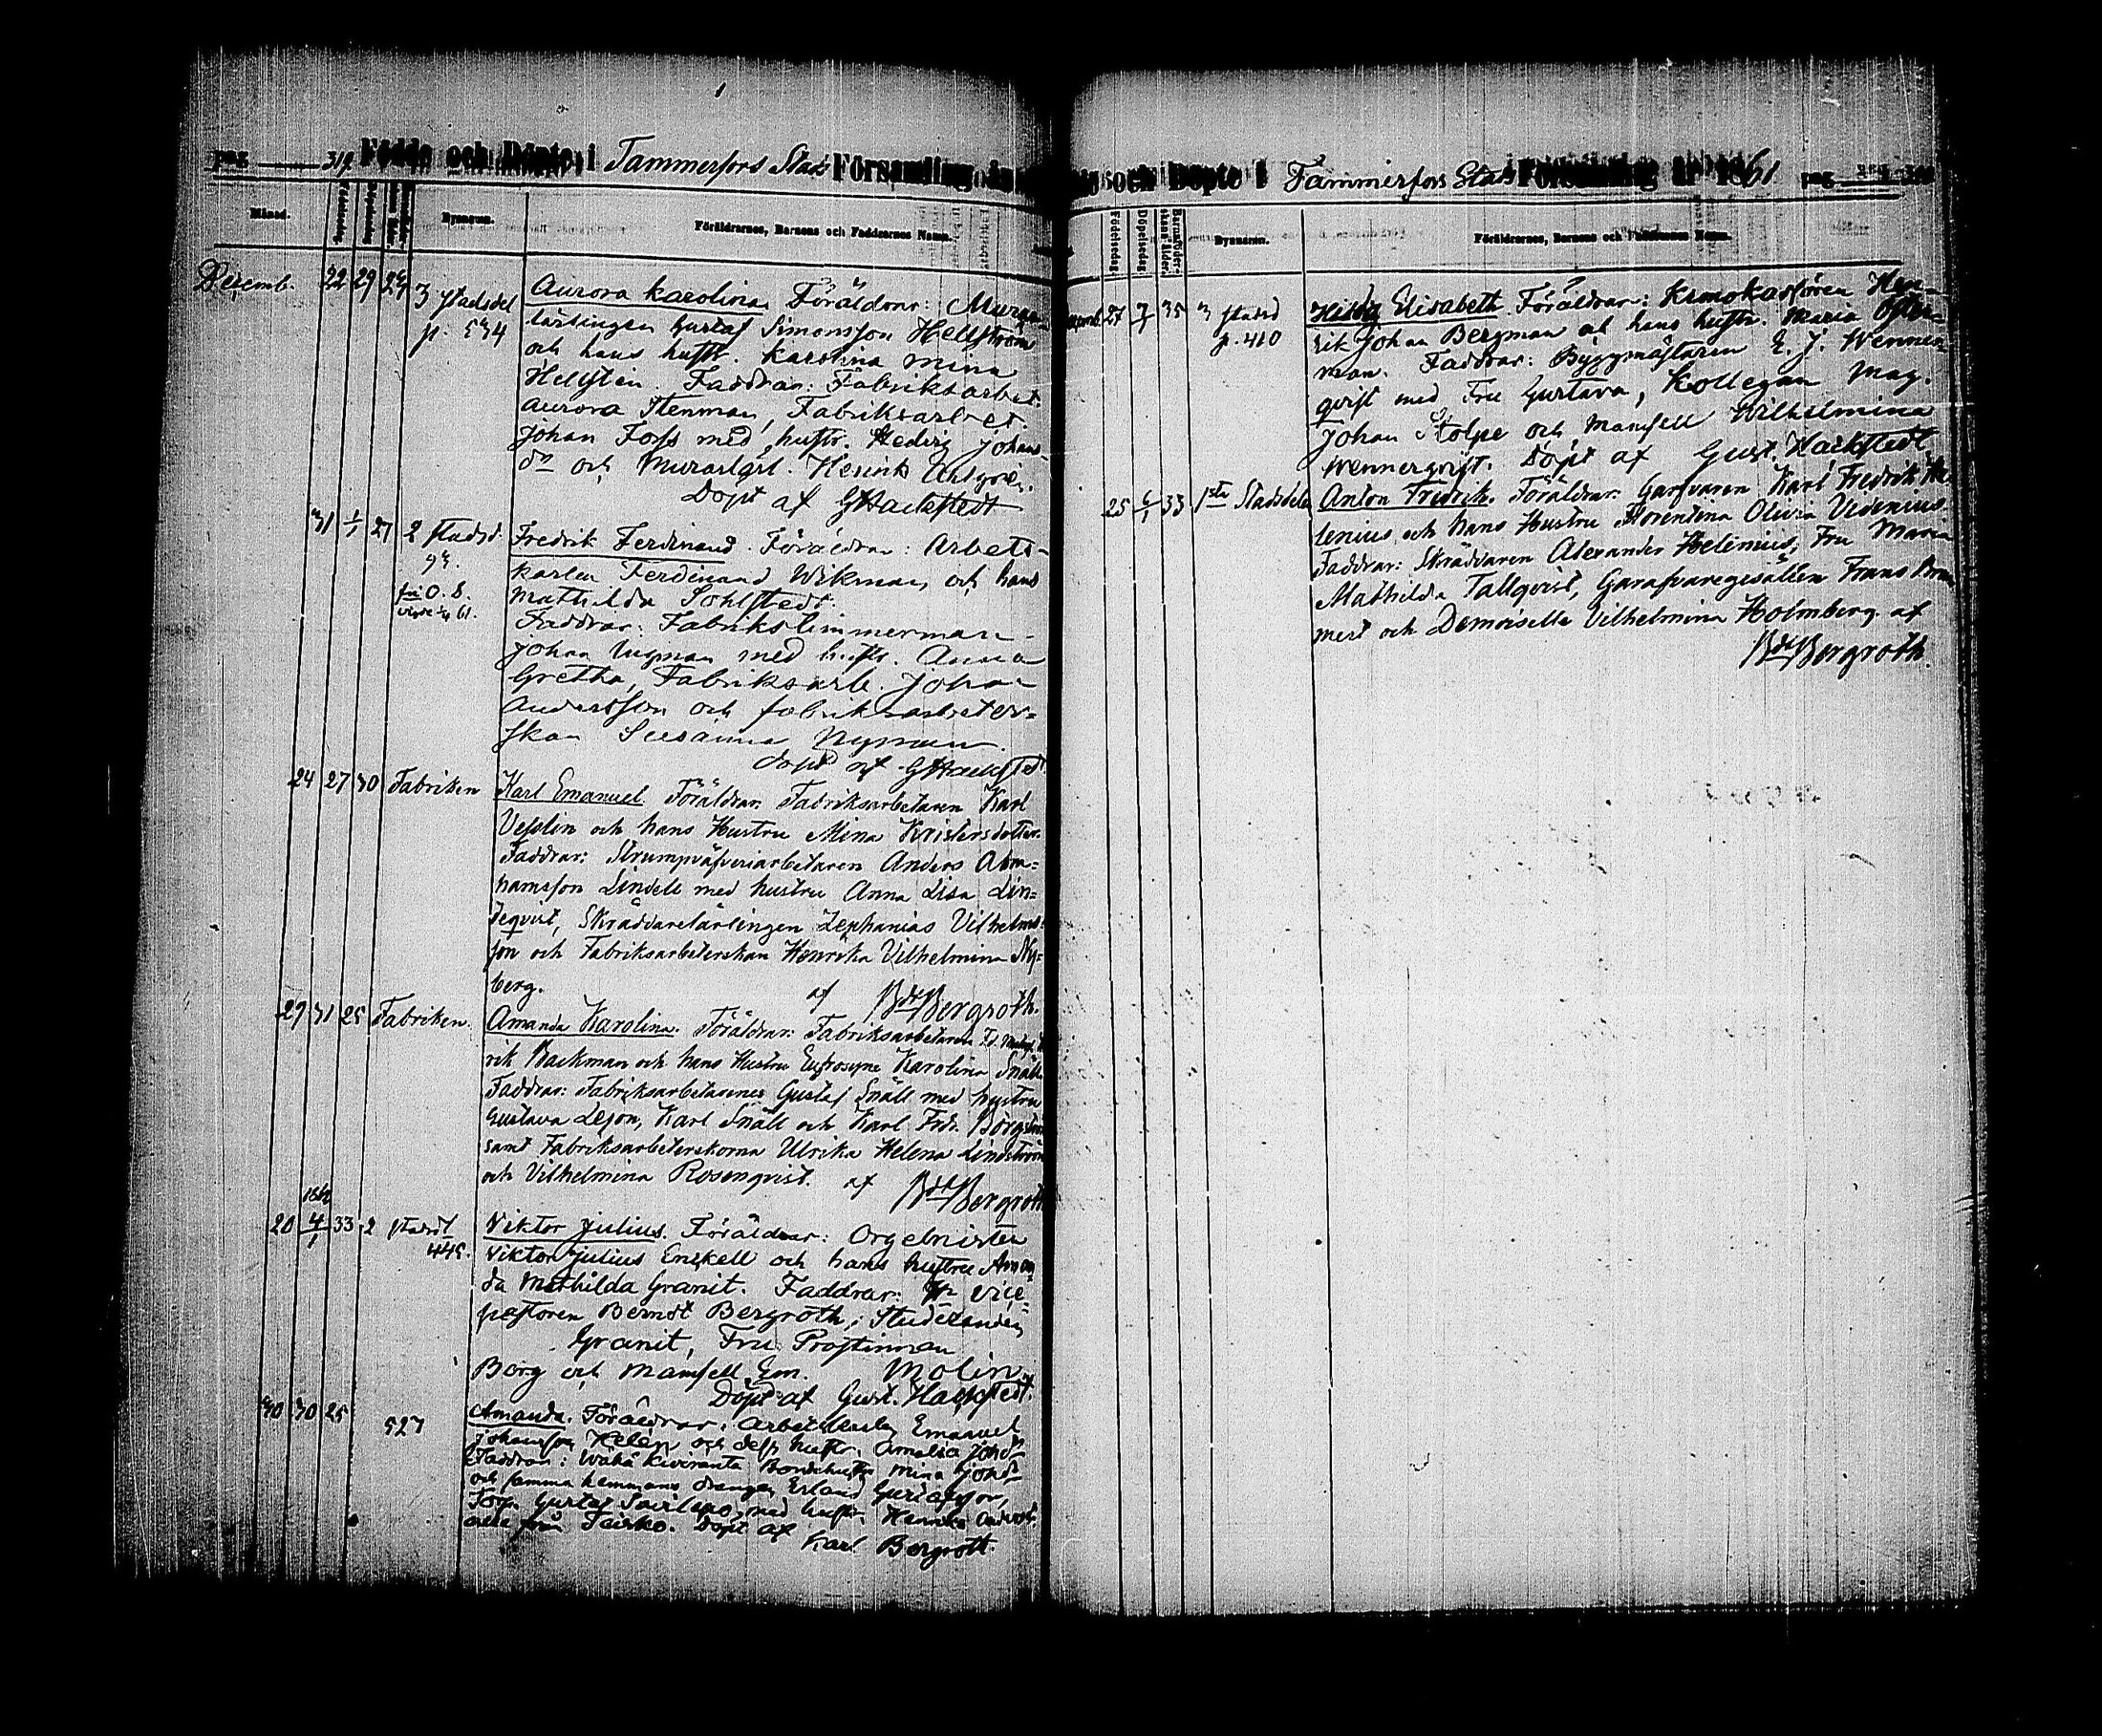 pag. 319 Födde och Döpte i Tammerfors Stads Församling år
Månad. Födelsedag. Döpelsedag. Bynamn. Föräldrarnes, Barnens och Faddrarnes Namn.
Decemb. 22 29 24 3 stadsdel Aurora Karolina. Föräldrar: Murare-
p. 534 lärlingen Gustaf Simonsson Hellström
och hans hustr. Karolina Mina
Hellsten. Faddrar: Fabriksarbet.
Aurora Stenman, Fabriksarbet.
Johan Forss med hustr. Hedvig Johans-
dr och Murarlärl. Henrik Ahlgren.
Döpt af GHackstedt
31 1/1 27 2 stadsd. Fredrik Ferdinand. Föräldrar: Arbets-
karlen Ferdinand Wikman och hans
Mathilda Sohlstedt.
Faddrar: Fabrikstimmerman
Johan Ingman med hustr. Anna
Gretha, Fabriksarb. Johan
Andersson och fabriksarbeter-
skan Susanna Nyman.
döpt af GHackstedt
24 27 30 Fabriken Karl Emanuel. Föräldrar: Fabriksarbetaren Karl
Vesslin och hans Hustru Mina Kristersdotter.
Faddrar: Strumpväfveriarbetaren Anders Abra-
hamsson Lindell med hustru Anna Lisa Lin-
deqvist, Skräddarelärlingen Zephanias Vilhelms-
son och Fabriksarbeterskan Henrika Vilhelmina Ny-
berg. af Bdt Bergroth.
29 31 25 Fabriken. Amanda Karolina. Föräldrar: Fabriksarbetaren
rik Backman och hans Hustru Eufrosyne Karolina Snäll
Faddrar: Fabriksarbetarenes Gustaf Snäll med hustru
Gustava Lejon, Karl Snäll och Karl Frdr.
samt Fabriksarbeterskorna Ulrika Helena Lindström
och Vilhelmina Rosenqvist. af Bdt Bergroth
1862
20 4/1 33 2 stadsd Viktor Julius. Föräldrar: Orgelnisten
445. Viktor Julius Enckell och hans hustru Aman-
da Mathilda Granit. Faddrar: Hr vice-
pastoren Berndt Bergroth, Studeranden
Granit, Fru Prostinnan
Borg och Mamsell Em. Molin.
Döpt af Gust. Hackstedt.
30 30 25 527 Amanda. Föräldrar: arbetskarlen Emanuel
Johansson Helén och dess hustr. Amalia Johdr
Faddrar: Wähä Kiviranta Bondehustr Mina Johdr
och samma hemmans drängen Erland Gustafsson,
Torp. Gustaf med hustr. Henrika
alla från Teisko. Döpt af
Karl Bergroth.
och Döpte i Tammerfors Stads Församling år 1861 pag.
Födelsedag. Döpelsedag. Bynamn. Föräldrarnes, Barnens och Faddrarnes Namn.
27 7/1 35 3 stadsd Hilda Elisabeth. Föräldrar: Kronokassören Hen-
p. 410 rik Johan Bergman ock hans hustr. Maria Öster-
man. Faddrar: Byggmästaren E. J. Wenner-
qvist med Fru Gustava, Kollegan Mag.
Johan Stolpe och Mamsell Wilhelmina
Wennerqvist. Döpt af Gust. Hackstedt
25 6/1 33 1sta Stadsdelen Anton Fredrik. Föräldrar: Garfvaren Karl Fredrik He-
lenius och hans Hustru Florentina Olivia Videnius.
Faddrar: Skräddaren Alexander Helenius, Fru Maria
Mathilda Tallqvist, Garfvaregesällen Frans Brum-
mert och Demoiselle Vilhelmina Holmberg. af
Bdt Bergroth.